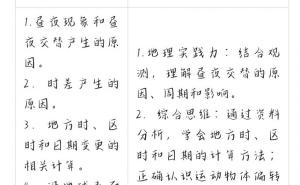 1.昼夜现象和昼
夜交替产生的原
因。
2. 时差产生的
原因。
3. 地方时、区
时和日期变更的
相关计算。
1.地理实践力：结合观
测，理解昼夜交替的原
因、周期和影响。
2. 综合思维：通过资料
分析，学会地方时、区
时和日期的计算方法；
正确认识运动物体偏转